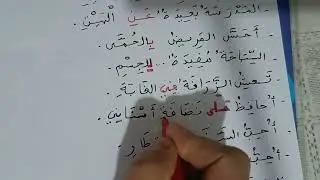 - المَدْرَسَةُ بَعِيدَةٌ عَنِ الْبَيْتِ.
- أَحَسَّ المَرِيضُ بِالحُمَّى.
- السِّبَاحَةُ مُفِيدَةٌ لِلْجِسْمِ.
- تَعِيشُ الزَّرَافَةُ فِي الغَابَةِ.
- أُحَافِظُ عَلَى نَظَافَةِ أَسْنَانِي.
- أُحِبُّ
- أُحِبُّ